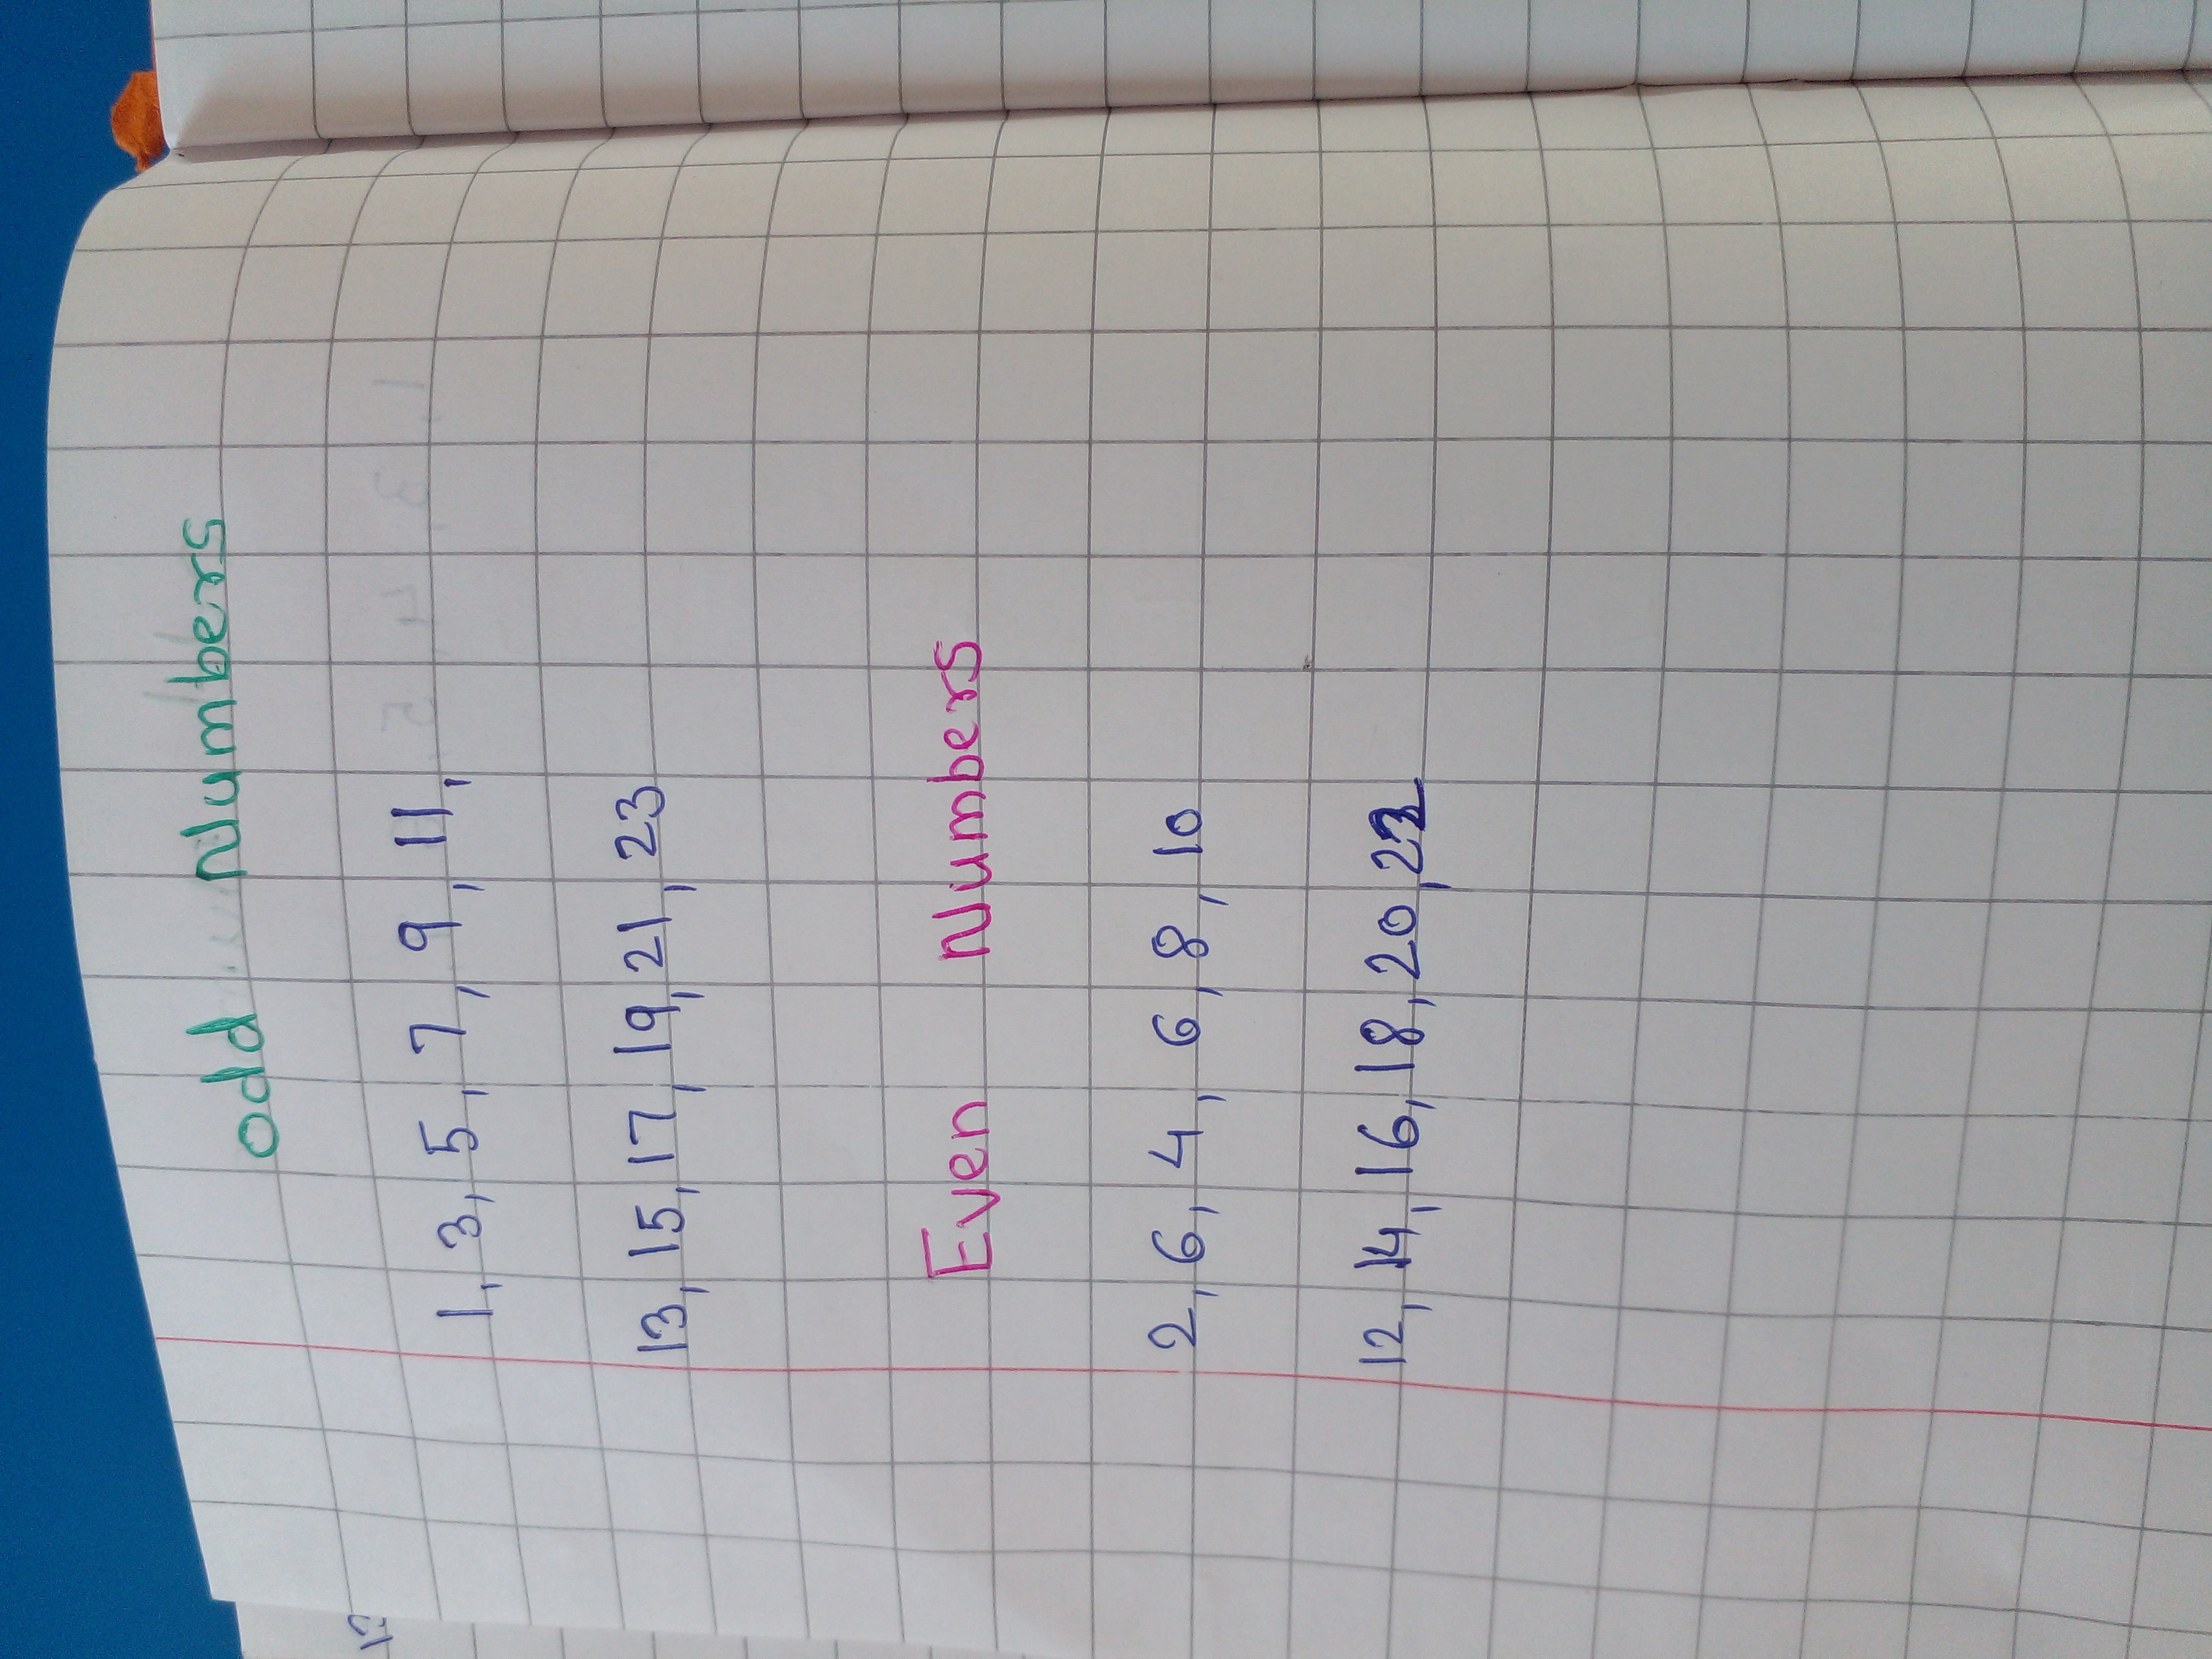 odd Numbers
1, 3, 5, 7, 9, 11,
13, 15, 17, 19, 21, 23
Even Numbers
2, 6, 4, 6, 8, 10
12, 14, 16, 18, 20,